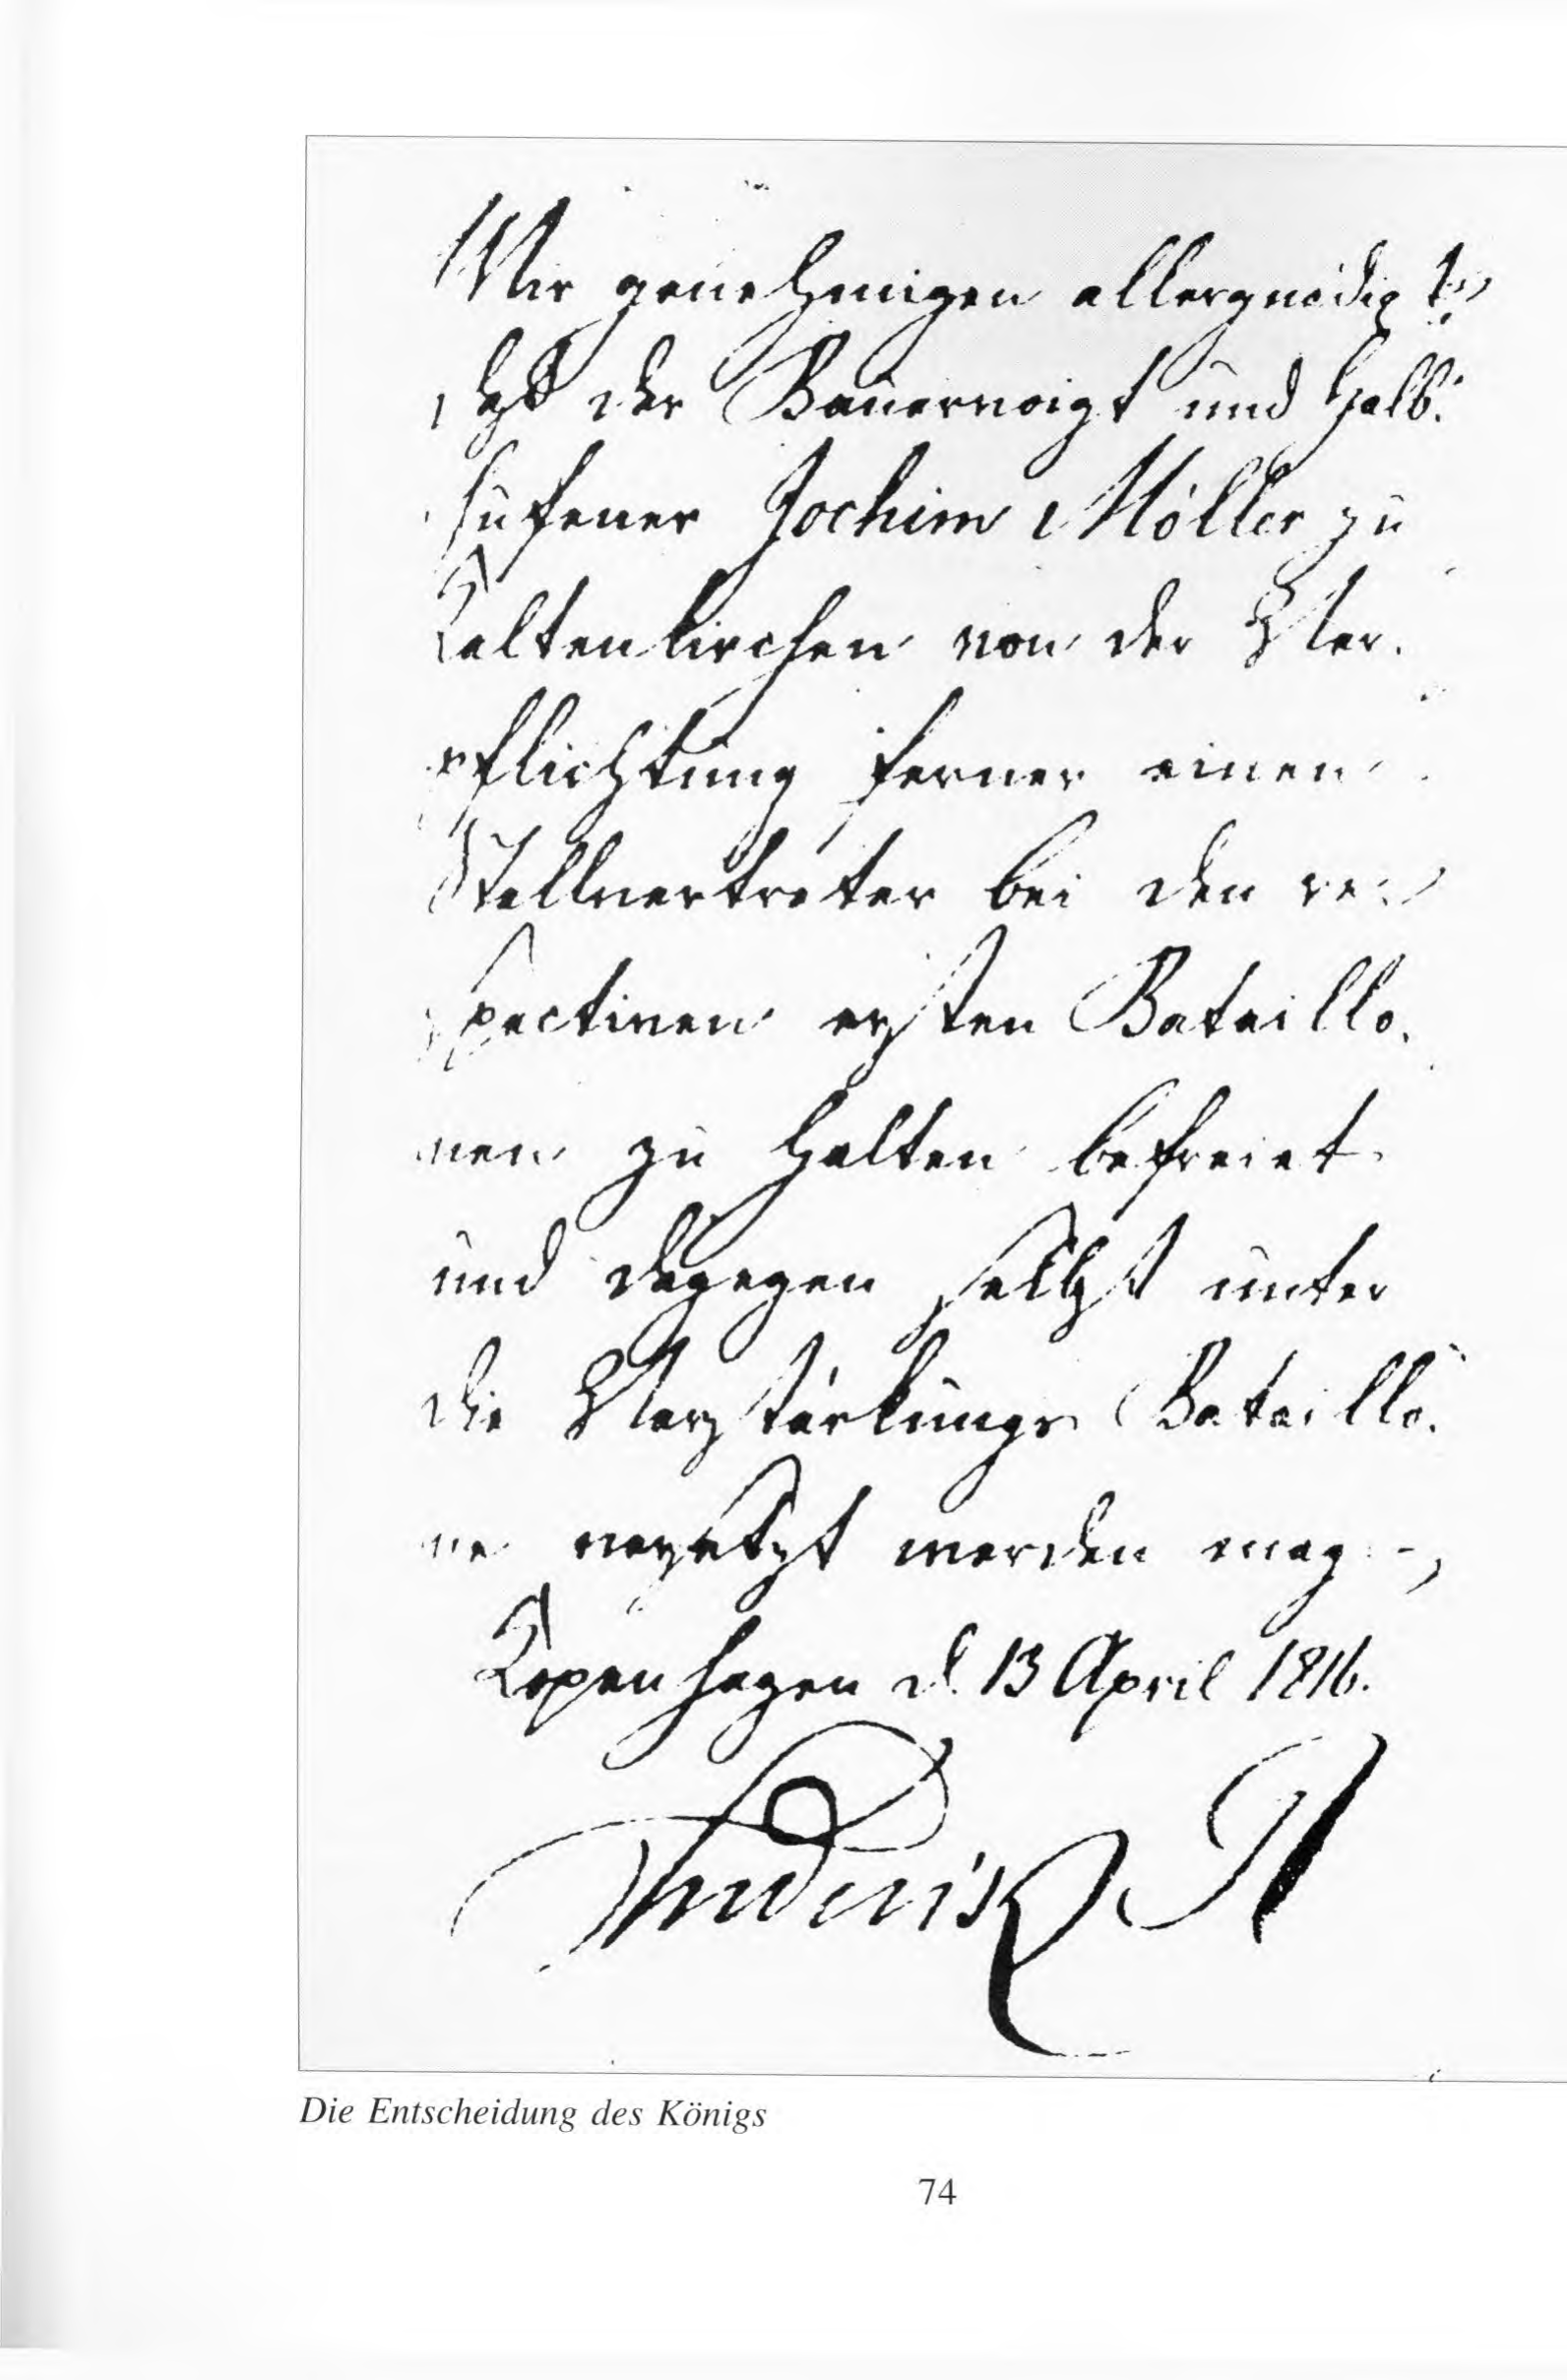 Wir genehmigen allergnädigst,
daß der Bauervoigt und Halb-
hufener Jochim Möller zu
Kaltenkirchen von der Ver-
pflichtung ferner einen
Stellvertreter bei den re-
spectiven ersten Bataillo-
nen zu halten befreiet
und dagegen selbst unter
die Verstärkungs Bataillo-
ne versetzt werden mag.
Kopenhagen d. 13 April 1816.
Frederik R
Die Entscheidung des Königs
74